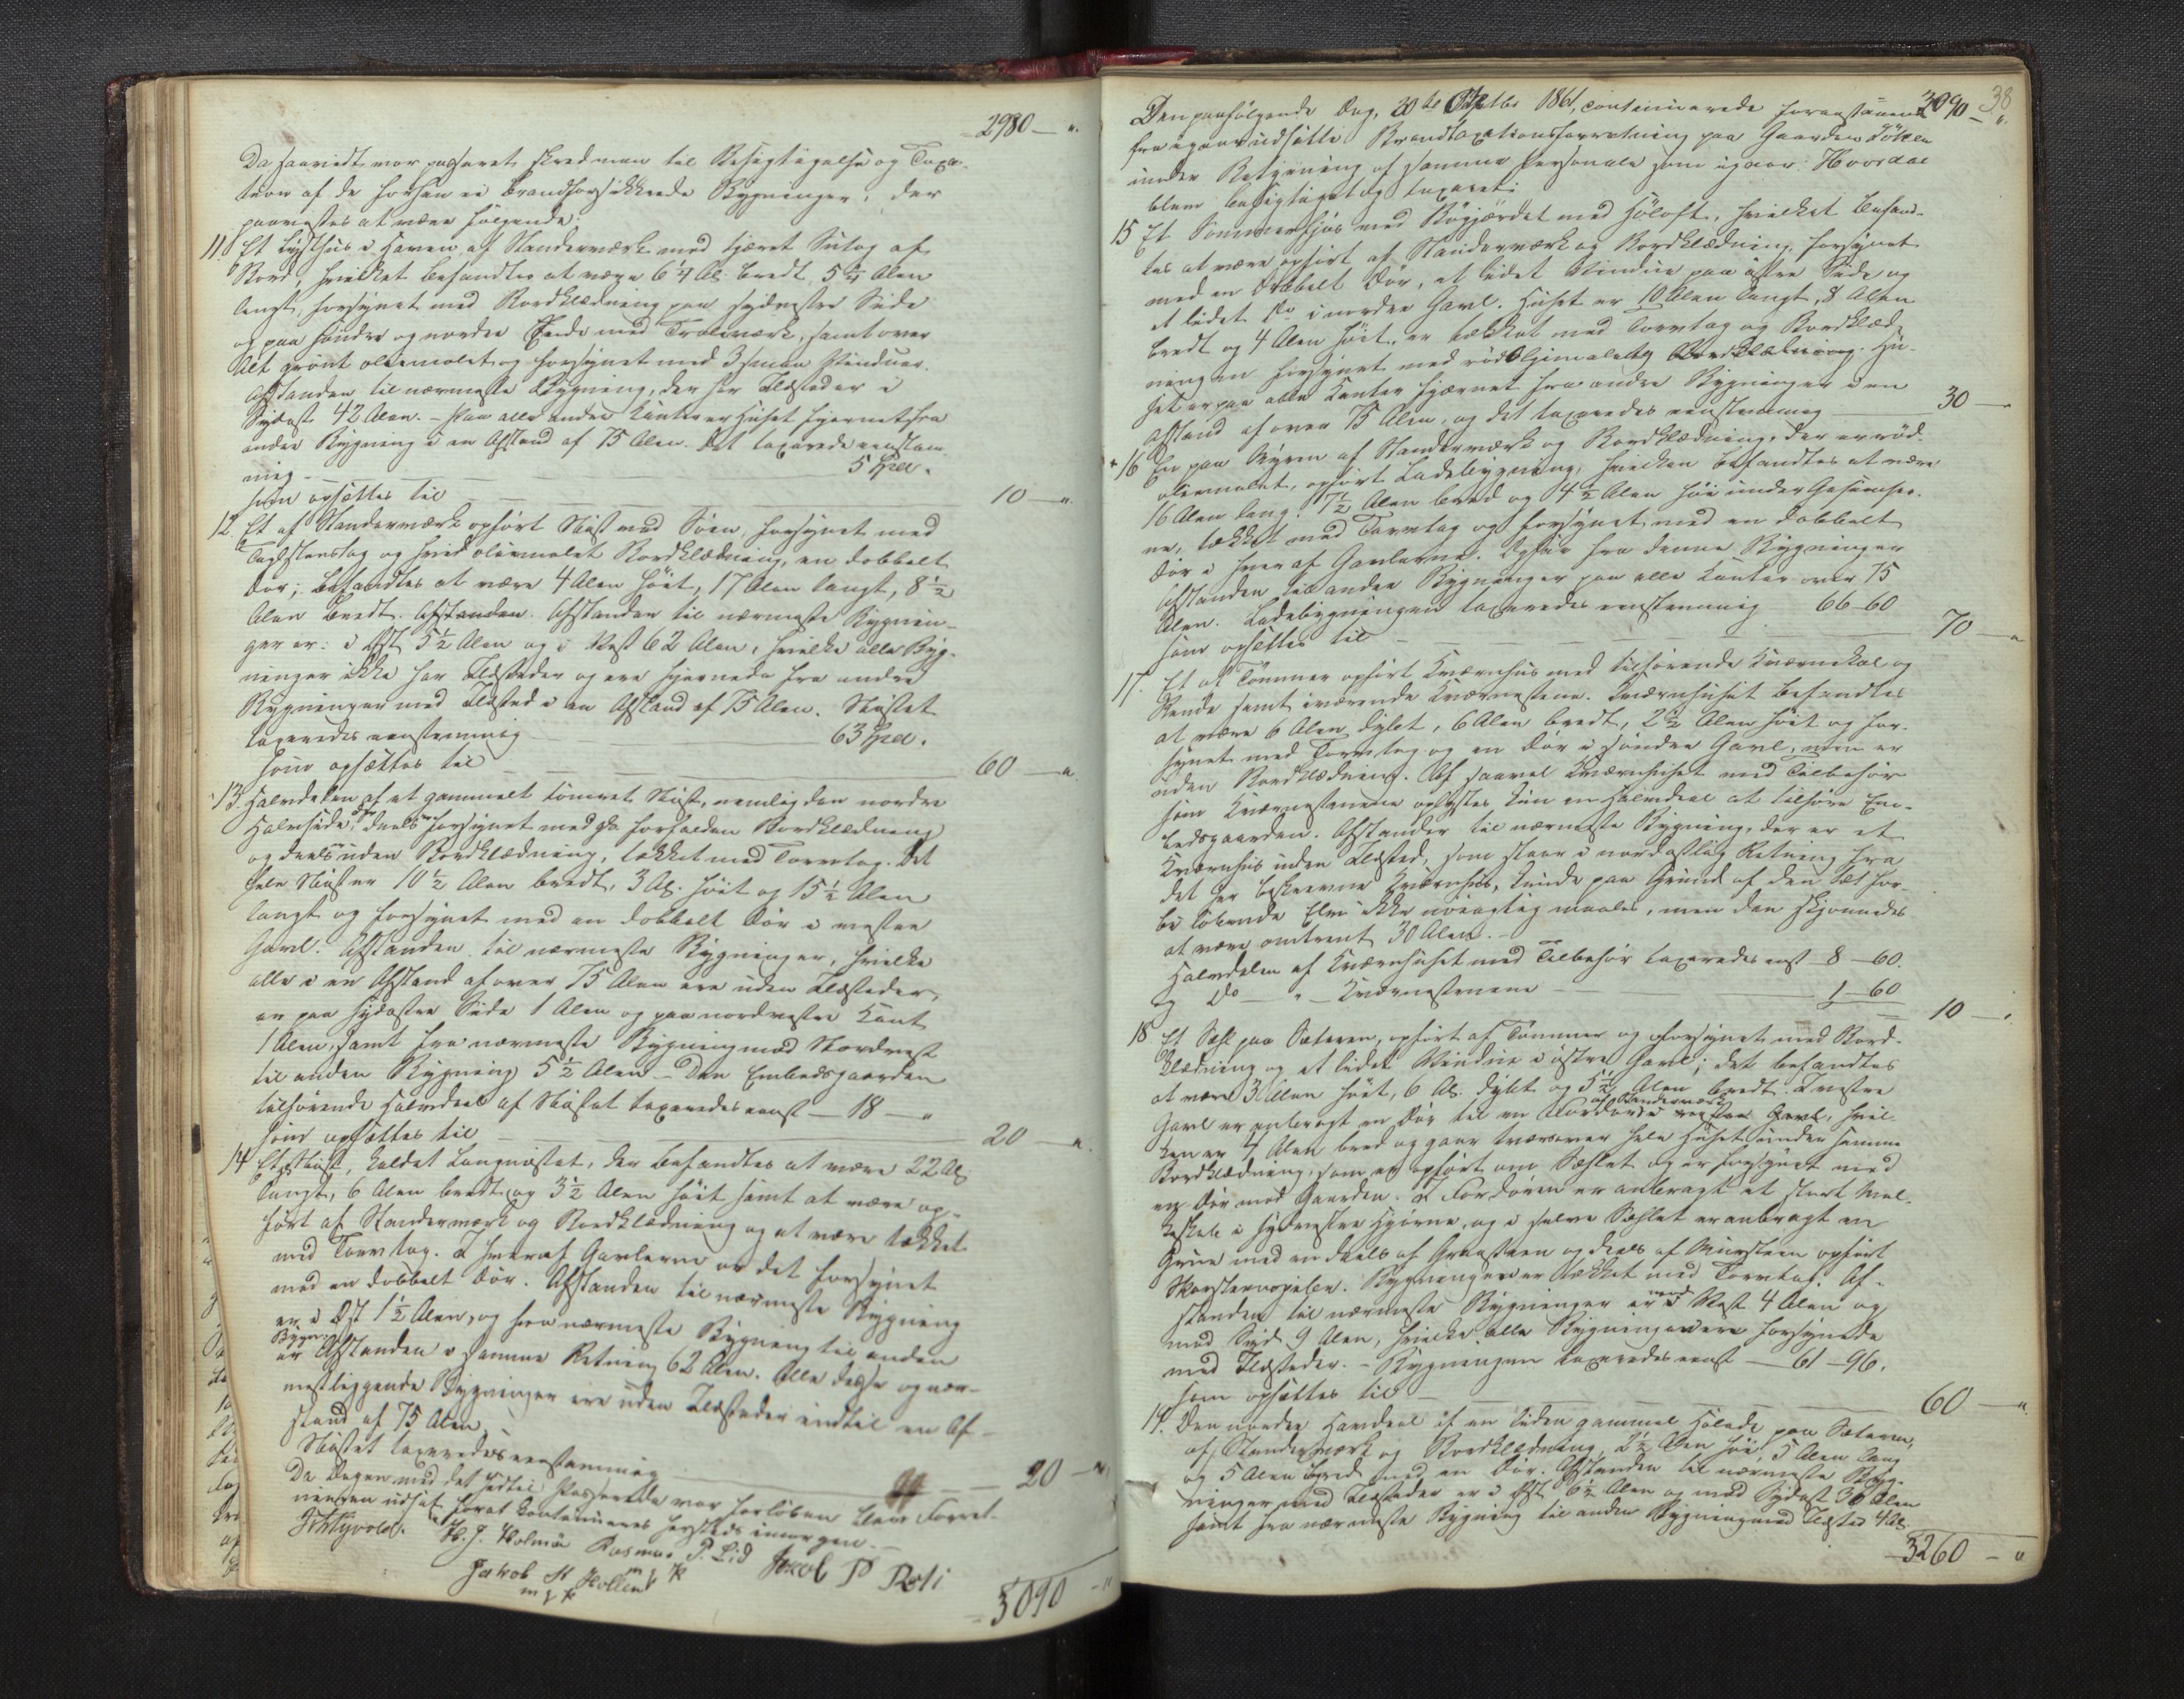 2980 — "
Da saavidt var passeret skred man til Besigtigelse og Taxa-
tion af de forhen ei brandforsikkrede Bygninger, der
paavistes at være følgende:
11. Et Lysthus i Haven af Standerværk med tjæret Sutag af
Bord, hvilket befandtes at være 6 1/4 Al. bredt, 5 3/4 Alen
langt, forsynet med Bordklædning paa sydvestre Side
og paa søndre og nordre Ende med Tralværk, samt over
Alt grønt oliemalet og forsynet med 3 smaa Vinduer.
Afstanden til nærmeste Bygning, der har Ildsteder er i
Sydost 42 Alen. – Paa alle andre Kanter er Huset fjernet fra
anden Bygning i en Afstand af 75 Alen. Det taxeredes eenstem-
mig — 5 Spd.
som opsættes til — 10 — "
12. Et af Standerværk opført Nøst ved Søen, forsynet med
Taglstenstag og hvid oliemalet Bordklædning, en dobbelt
Dør; befandtes at være 4 Alen høit, 17 Alen langt, 8 1/2
Alen bredt. Afstanden. Afstanden til nærmeste Bygnin-
ger er: i Øst 5 1/2 Alen og i Vest 62 Alen, hvilke alle Byg-
ninger ikke har Ildsteder og ere fjernede fra andre
Bygninger med Ildsted i en Afstand af 75 Alen. Nøstet
taxeredes eenstemmig — 63 Spd.
som opsættes til — 60 — "
13. Halvdelen af et gammelt tømret Nøst, nemlig den nordre
Halvside, deels forsynet med forfalden Bordklædning
og deels uden Bordklædning, tækket med Torvtag. Det
hele Nøst er 10 1/2 Alen bredt, 3 Al. høit og 15 1/2 Alen
langt og forsynet med en dobbelt Dør i vestre
Gavl. Afstanden til nærmeste Bygninger, hvilke
alle i en Afstand af over 75 Alen ere uden Ildsteder,
er paa sydostre Side 1 Alen og paa nordvestre Kant
1 Alen, samt fra nærmeste Bygning mod Nordvest
til anden Bygning 5 1/2 Alen – Den Embedsgaarden
tilhørende Halvdeel af Nøstet taxeredes eenst — 18 — "
som opsættes til — 20 — "
14 Et Nøst, kaldet Langnøstet, der befandtes at være 22 Al.
langt, 6 Alen bredt og 3 1/2 Alen høit samt at være op-
ført af Standerværk og Bordklædning og at være tækket
med Torvtag. I hver af Gavlerne er det forsynet
med en dobbelt Dør. Afstanden til nærmeste Bygning
er i Øst 1 1/2 Alen, og fra nærmeste Bygning til anden
Bygn. er Afstanden i samme Retning 62 Alen. Alle disse og nær-
mestliggende Bygninger ere uden Ildsteder indtil en Af-
stand af 75 Alen.
Nøstet taxeredes eenstemmig — 20 — "
Da Dagen med det hidtil Passerede var forløben blev Forret-
ningen udsat forat kontinueres hersteds imorgen. –
H. J. Holmø Rasmus P. Lid Jakob P Roti
m f P
Jakob H Hollen
m f P
3090 — "
38
Den paafølgende Dag, 20de Octbr 1861, continuerede foranstaaende 3090 — "
fra igaar udsatte Brandtaxationsforretning paa Gaarden
under Bestyrelse af samme Personale som igaar. Hvordan
blev besigtiget og taxeret:
15 Et Sommerfjøs med med Høloft, hvilket befand-
tes at være opført af Standerværk og Bordklædning, forsynet
med en dobbelt Dør, et lidet Vindue paa østre Side og
et lidet Do i nordre Gavl. Huset er 10 Alen langt, 8 Alen
bredt og 4 Alen høit, er tækket med Torvtag og Bordklæd-
ningen forsynet med rød Oljemaling Bordklædning. Hu-
set er paa alle Kanter fjærnet fra andre Bygninger i en
Afstand af over 75 Alen, og det taxeredes eenstemmig — 30 — "
16 En paa Myren af Standerværk og Bordklædning, der er rød-
oliemalet, opført Ladebygning, hvilken befandtes at være
16 Alen lang, 7 1/2 Alen bred og 4 1/2 Alen høi under Gesimser-
ne, tækket med Torvtag og forsynet med en dobbelt
Dør i hver af Gavlerne. Ogsaa fra denne Bygningen
Afstanden til andre Bygninger paa alle Kanter over 75
Alen. Ladebygningen taxeredes eenstemmig 66 – 60
som opsættes til — 70 — "
17. Et af Tømmer opført Kværnhus med tilhørende Kværnekal og
Rende samt iværende Kværnestene. Kværnhuset befandtes
at være 6 Alen dybt, 6 Alen bredt, 2 1/2 Alen høit og for-
synet med Torvtag og en Dør i søndre Gavl, men er
uden Bordklædning. Af saavel Kværnhuset med Tilbehør
som Kværnestenene oplystes kun en Halvdeel at tilhøre Em-
bedsgaarden. Afstanden til nærmeste Bygning, der er et
Kværnhus uden Ildsted, som staar i nordostlig Retning fra
det her beskrevne Kværnhus, kunde paa Grund af den tæt for-
bi løbende Elv ikke nøiagtig maales, men den skjønnedes
at være omtrent 30 Alen. –
Halvdelen af Kværnhuset med Tilbehør taxeredes eenst 8 – 60.
og Do — " — Kværnestenene — 1 – 60
10 — "
18 Et Sæl paa Sæteren, opført af Tømmer og forsynet med Bord-
klædning og et lidet Vindue i østre Gavl; det befandtes
at være 3 Alen høit, 6 Al. dybt og 5 1/2 Alen bredt. I vestre
Gavl er anbragt en Dør til en Fordør af Standerværk i vestre Gavl, hvil-
ken er 4 Alen bred og gaar tværsover hele Huset under samme
Bordklædning, som er opført om Sælet og er forsynet med
en Dør mod Gaarden. I Fordøren er anbragt et stort Mel-
keskab i sydvestre Hjørne, og i selve Sælet er anbragt en
Grue med en deels af Graasteen og deels af Mursteen opført
Skorsteenspibe. Bygningen er tækket med Torvtag. Af-
standen til nærmeste Bygninger er mod Vest 4 Alen og
mod Syd 9 Alen, hvilke alle Bygninger ere forsynede
med Ildsteder. – Bygningen taxeredes eenst — 61 – 96.
som opsættes til — 60 — "
19. Den nordre Halvdeel af en liden gammel Hølade paa Sæteren,
af Standerværk og Bordklædning, 2 1/2 Alen høi, 5 Alen lang
og 5 Alen bred med en Dør. Afstanden til nærmeste Byg-
ninger med Ildsteder er i Øst 6 1/2 Alen og mod Sydost 30 Alen
samt fra nærmeste Bygning til anden Bygning med Ildsted 4 Al.
3260 — "